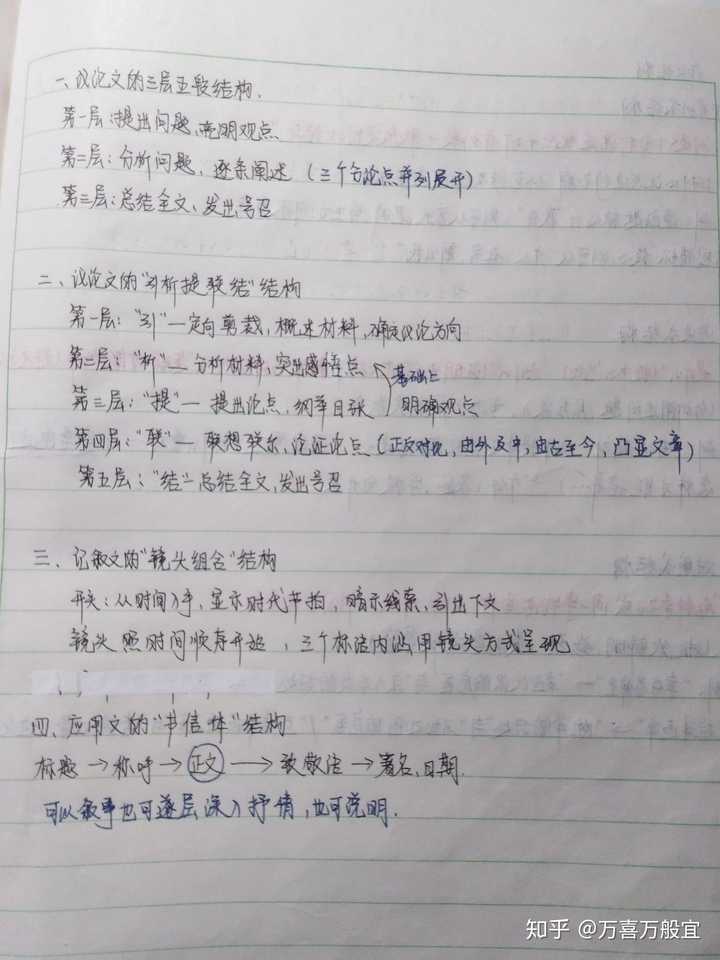 一、议论文的三层五段结构.
第一层:提出问题,亮明观点
第二层:分析问题,逐条阐述(三个分论点并列展开)
第三层:总结全文、发出号召
二、议论文的“引析提联结”结构
第一层:“引”一定向剪裁,概述材料,确定议论方向
第二层:“析”一分析材料,突出感悟点
基础上
第三层:“提”一提出论点,纲举目张
明确观点
第四层:“联”一联想联系,论证论点(正反对比,由外及中,由古至今,凸显文章)
第五层:“结”一总结全文,发出号召
三、记叙文的“镜头组合”结构
开头:从时间入手,显示时代节拍,暗示线索,引出下文
镜头照时间顺序开始,三个标准内涵用镜头方式呈现
四、应用文的“书信体”结构
标题→称呼→正文→致敬语→署名、日期.
可以叙事也可逐层深入抒情,也可说明.
知乎 @万喜万般宜